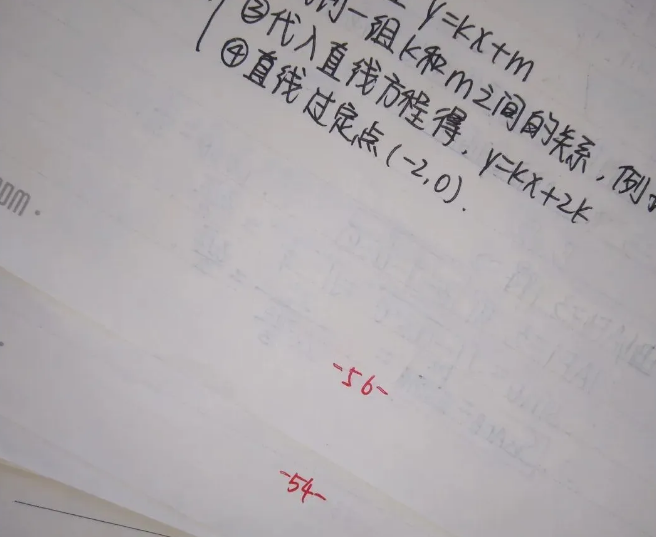 y=kx+m
一组k和m之间的关系,例
③代入直线方程得,y=kx+2k
④直线过定点(-2,0).
om.
-56-
-54-